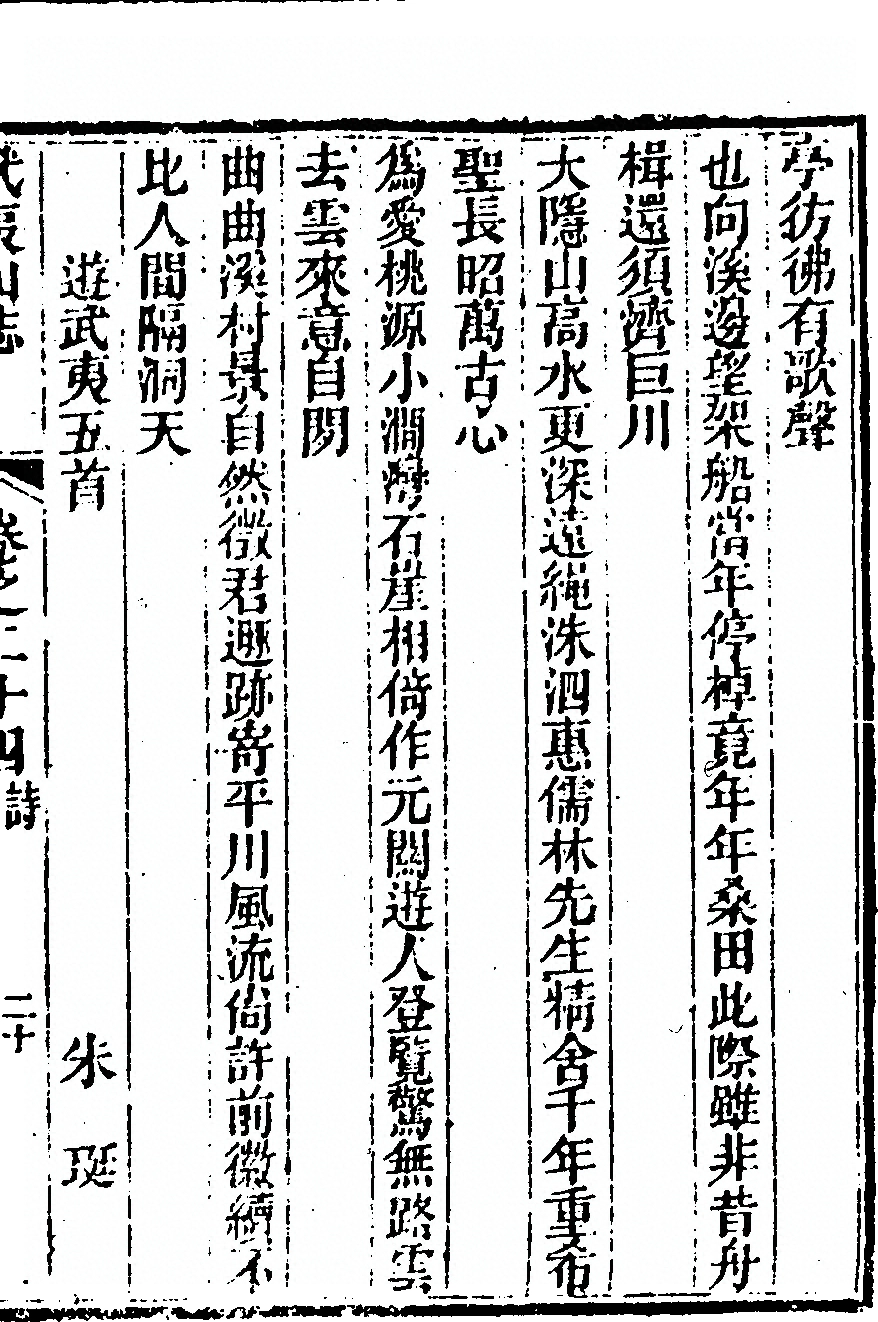 亭彷彿有歌聲
也向溪邊望架船當年停棹竟年年桑田此際雖非昔舟
楫還須濟巨川
大隱山高水更深遠繩洙泗惠儒林先生精舍千年重布
聖長昭萬古心
爲愛桃源小澗灣石崖相倚作元關遊人登覽驚無路雲
去雲來意自閒
曲曲溪村景自然徵君遯跡寄平川風流尙許前徽續不
比人間隔洞天
遊武夷五首 朱珽
武夷山志 卷之二十四 詩 二十